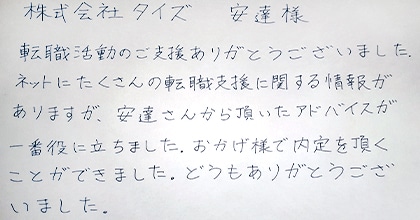 株式会社タイズ　安達様
転職活動のご支援ありがとうございました.
ネットにたくさんの転職支援に関する情報が
ありますが、安達さんから頂いたアドバイスが
一番役に立ちました. おかげ様で内定を頂く
ことができました. どうもありがとうござ
いました.